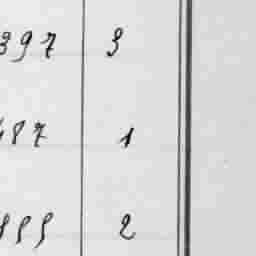 397 3
487 1
2